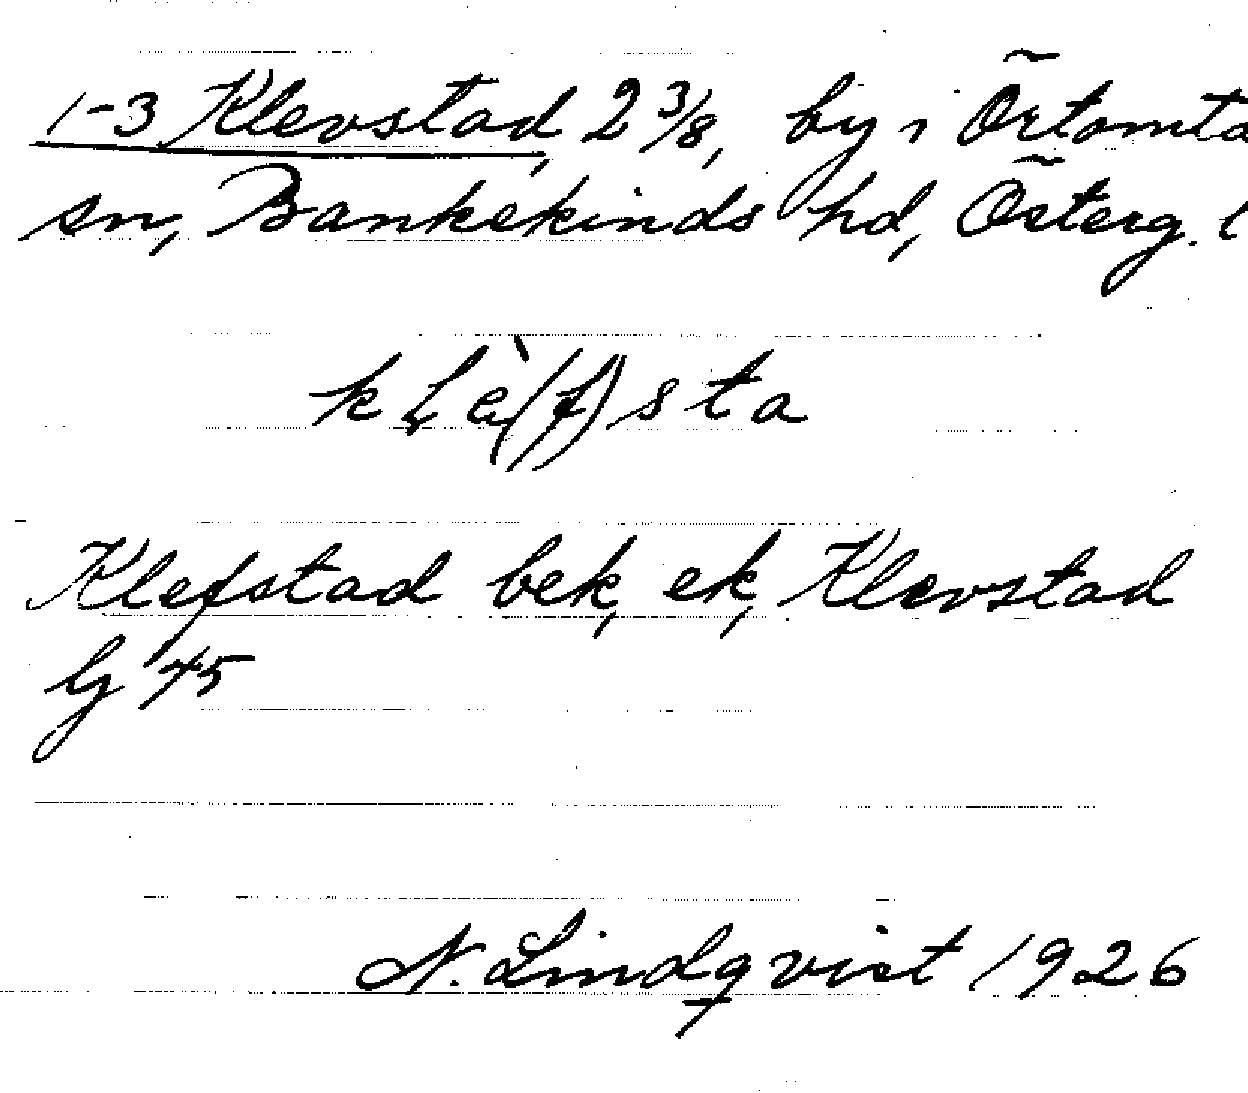 1-3 Klevstad, 2 3/8, by i Örtomta
sn, Bankekinds hd, Österg. l
klè(f)sta
Klefstad bek, ek, Klevstad
Gj 45
N. Lindqvist 1926